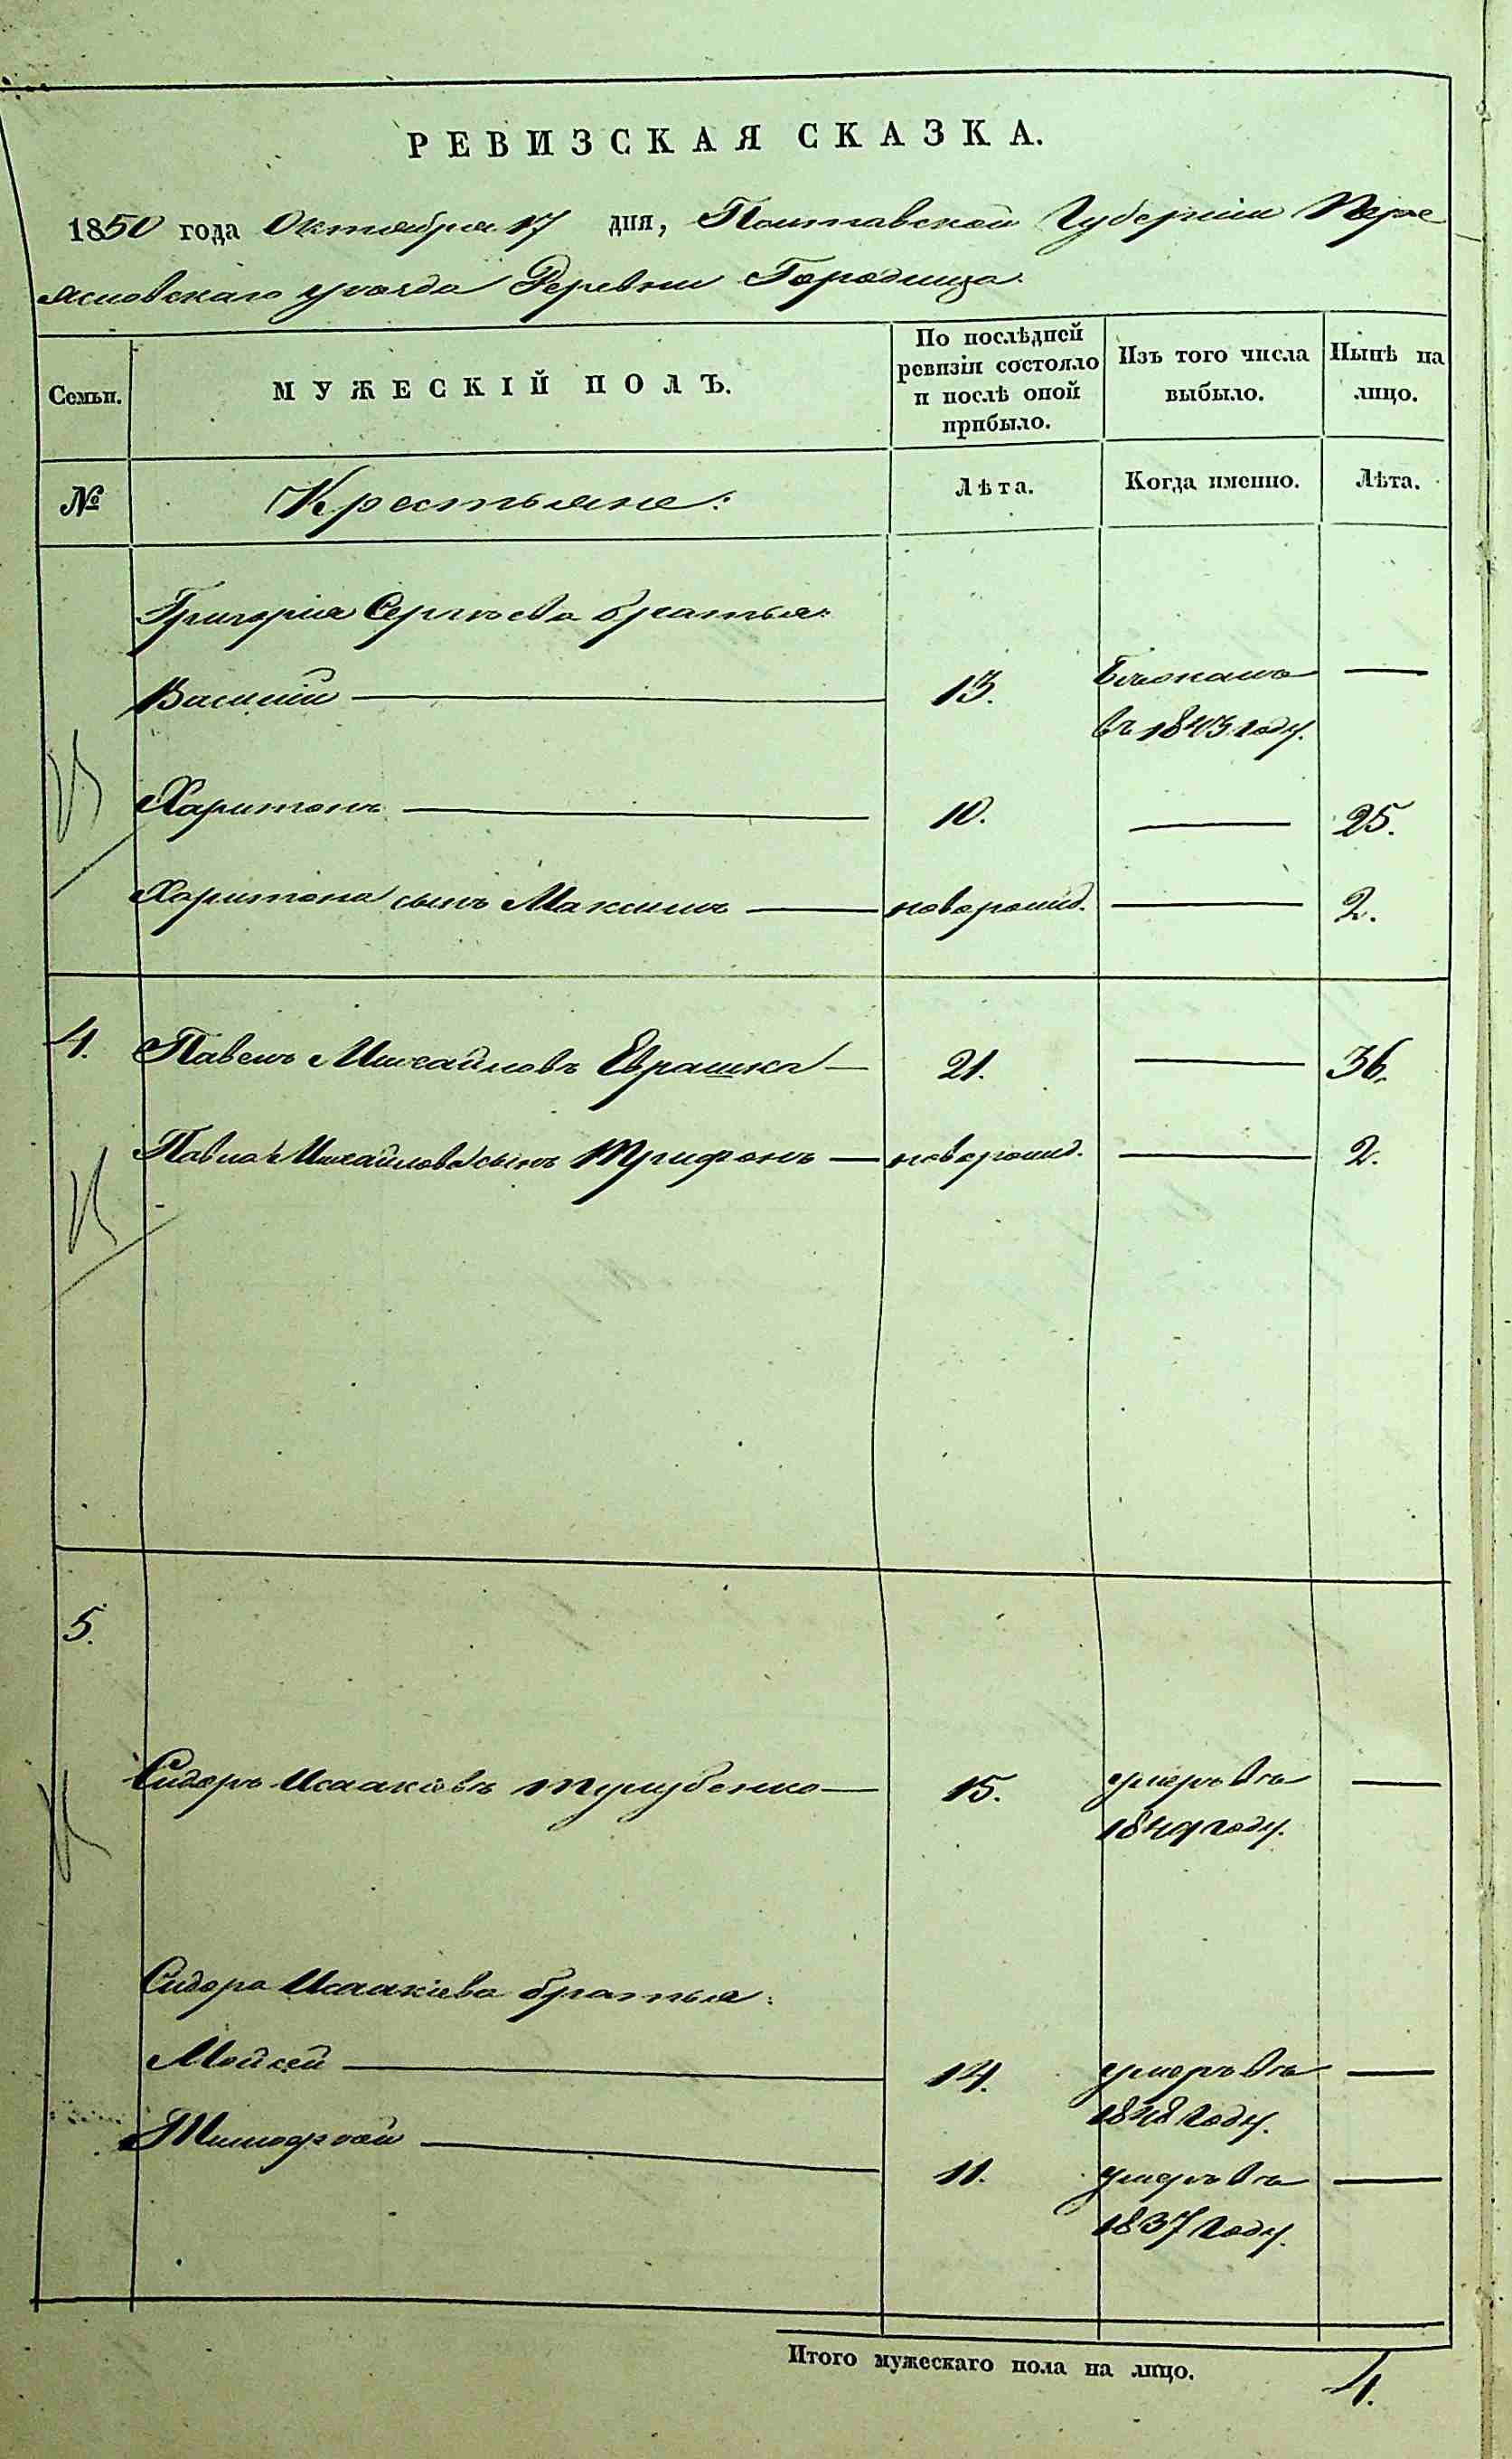 РЕВИЗСКАЯ СКАЗКА.
1850 года Октября 17 дня, Полтавской Губернiи Пере
яславскаго уѣзда Деревни Городища.
Семьи. МУЖЕСКІЙ ПОЛЪ. По послѣдней ревизіи состояло и послѣ оной прибыло. Изъ того числа выбыло. Нынѣ на лицо.
№ Крестьяне: Лѣта. Когда именно. Лѣта.
Григорія Сергѣева братья:
Василій — 13. Бѣжалъ —
въ 1843 году.
Харитонъ — 10. — 25.
Харитона сынъ Максимъ — новорожд. — 2.
4. Павелъ Михайловъ Еврашка — 21. — 36.
Павла Михайлова сынъ Трифонъ — новорожд. — 2.
5.
Сидоръ Исаакіевъ Трурубенко — 15. умеръ въ —
1849 году.
Сидора Исаакіева братья:
Мойсей — 14. умеръ въ —
1848 году.
Тимофѣй — 11. умеръ въ —
1837 году.
Итого мужескаго пола на лицо. 4.